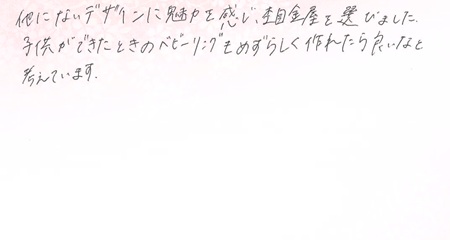 他にないデザインに魅力を感じ、杢目金屋を選びました。
子供ができたときのベビーリングもめずらしく作れたら良いなと
考えています。